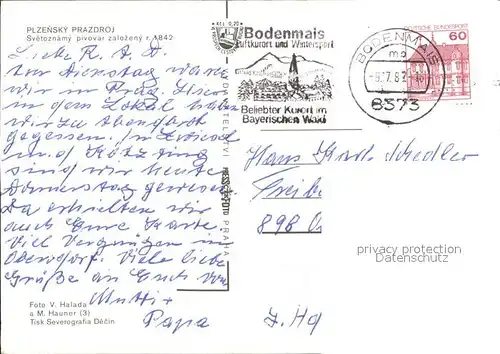 PLZEŇSKÝ PRAZDROJ
Světoznámý pivovar založený r. 1842
Liebe R. A. D.
Am Dienstag waren
wir in Prag. Hier
in dem Lokal haben
wir zu Abend
gegessen. In Zwiesel
und Kötzting
sind wir heute
Donnerstag gewesen.
Da erhielten wir
auch Eure Karte.
Viel Vergnügen in
Oberdorf. Viele liebe
Grüße an Euch von
Mutti +
Papa
Foto V. Halada
a M. Haunor (3)
Tisk Severografia Děčín
KčL 0,20
PRAHA
Bodenmais
Luftkurort und Wintersport
Beliebter Kurort im
Bayerischen Wald
BODENMAIS
8373
DEUTSCHE BUNDESPOST
60
Hans Karl
898 O
privacy protection
Datenschutz
z. Hd